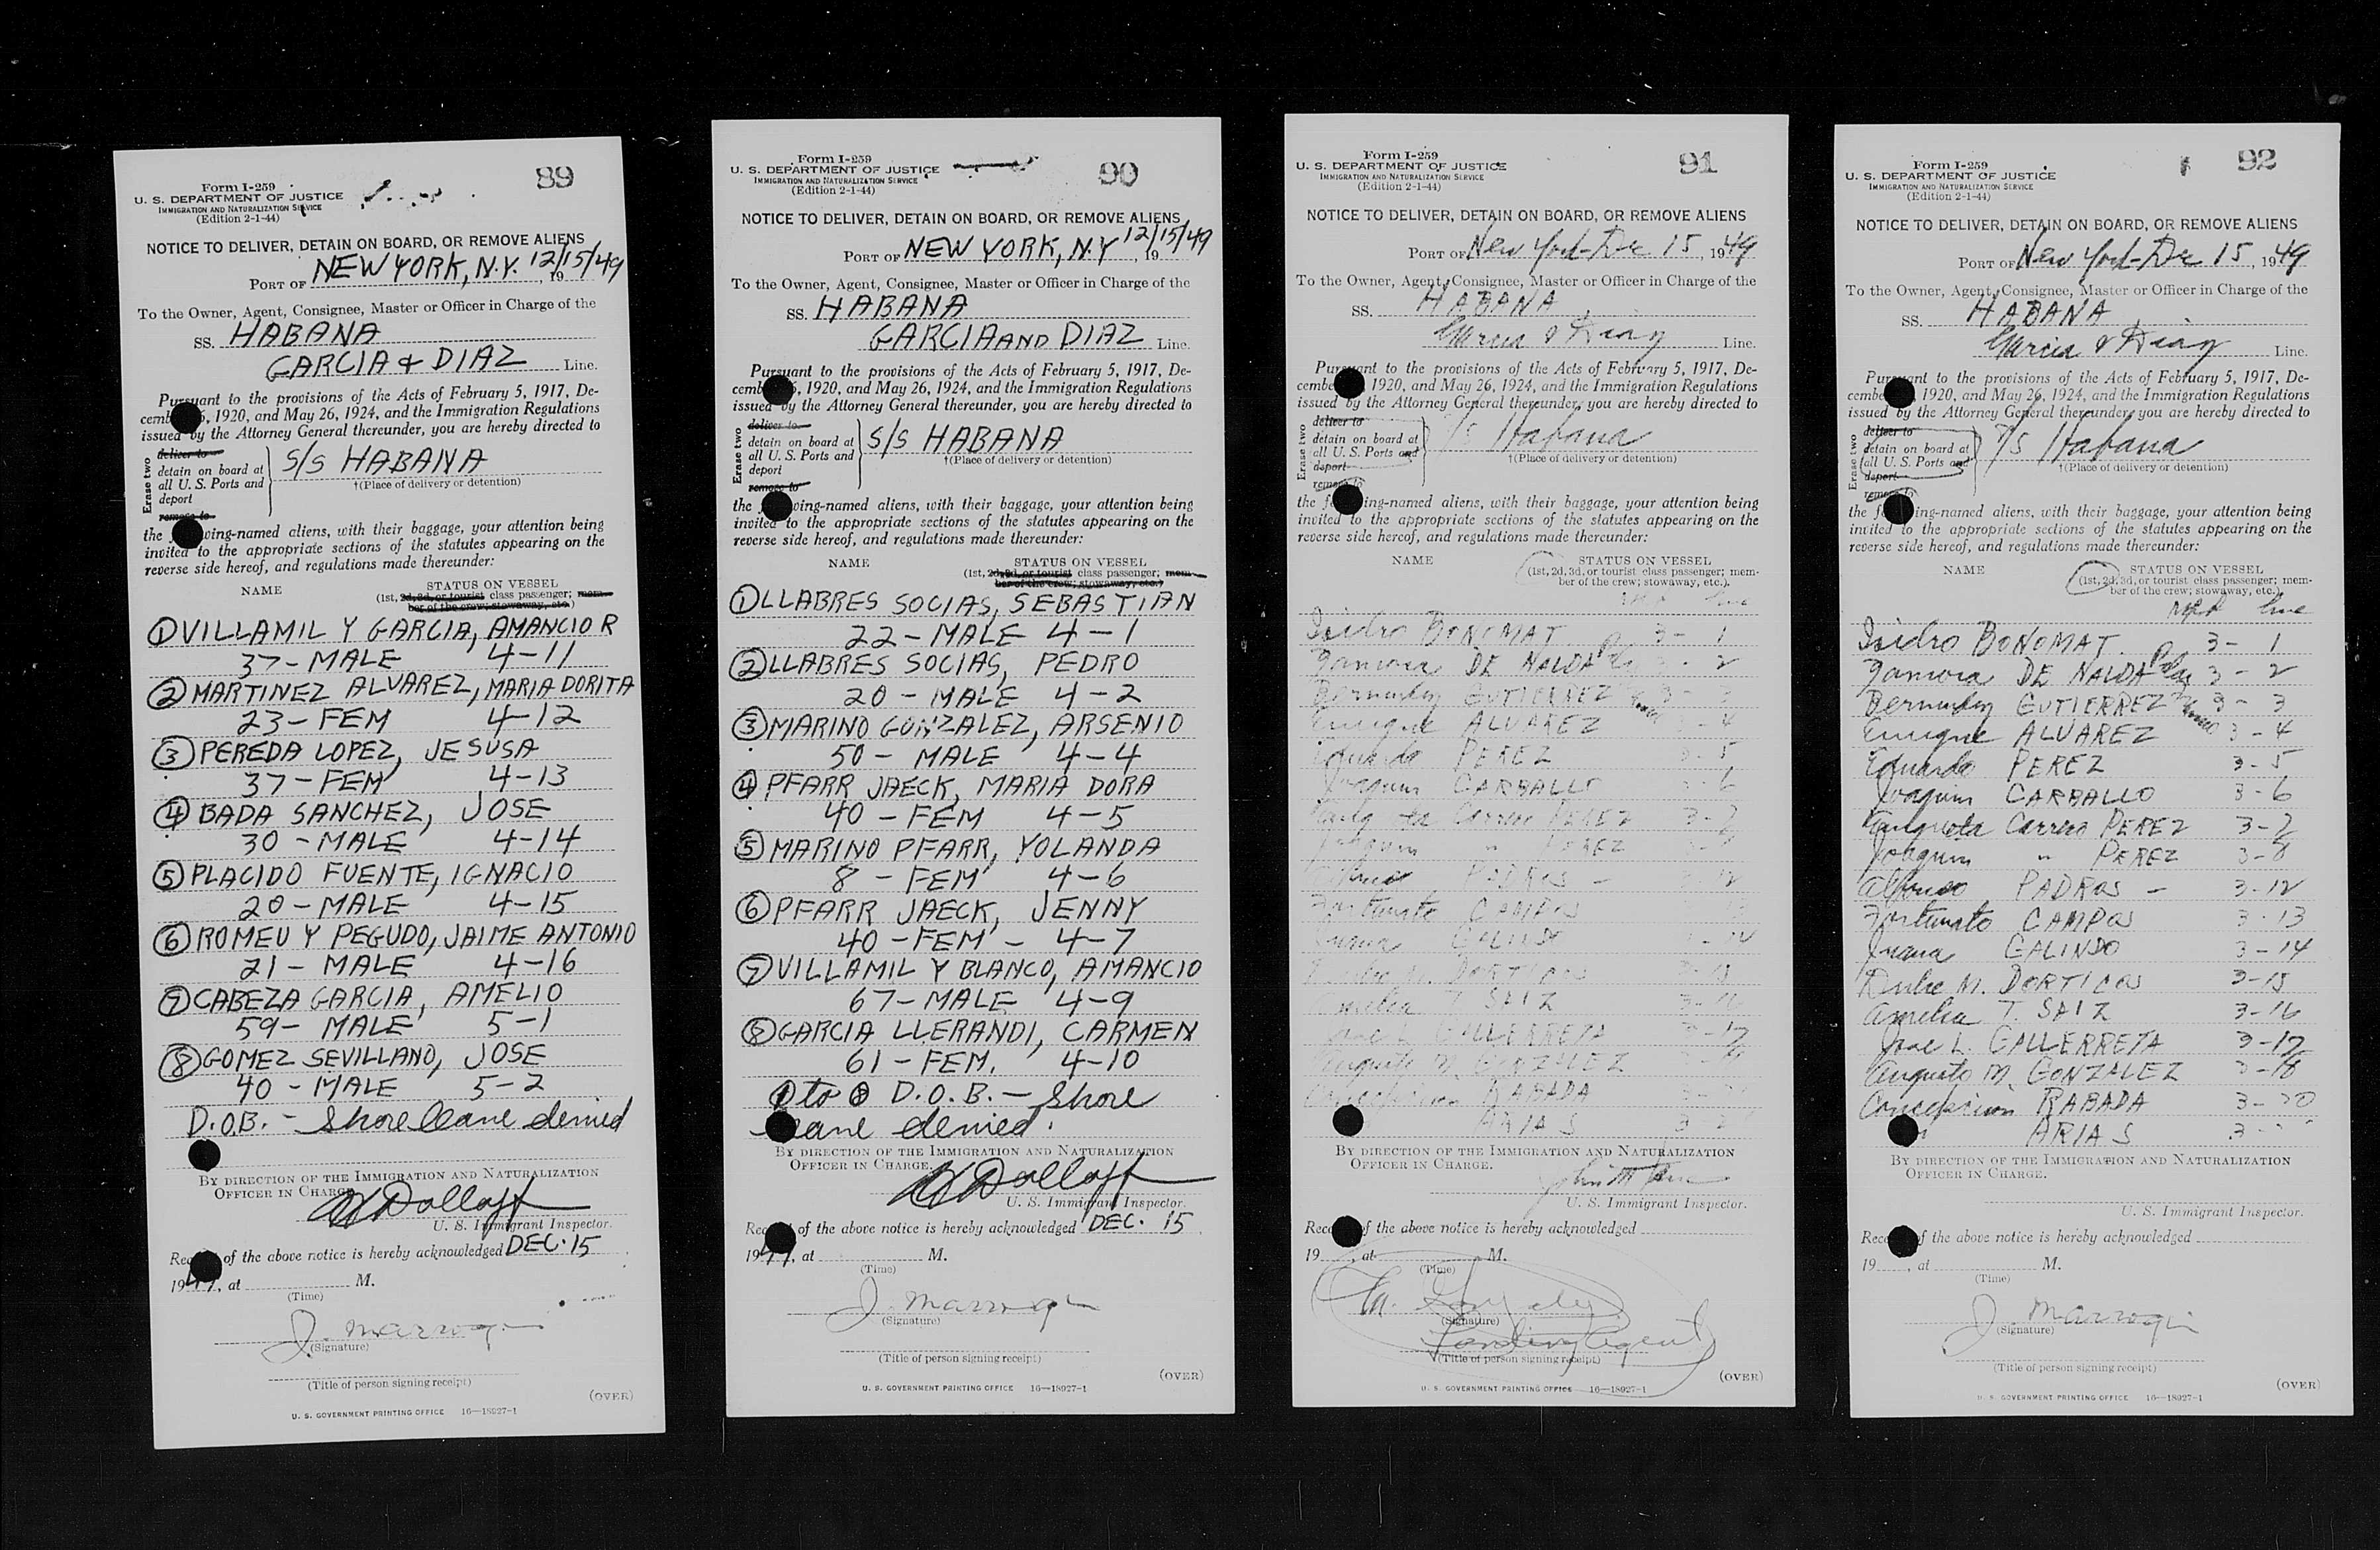 89
Form I-259
U. S. DEPARTMENT OF JUSTICE
IMMIGRATION AND NATURALIZATION SERVICE
(Edition 2-1-44)
NOTICE TO DELIVER, DETAIN ON BOARD, OR REMOVE ALIENS
PORT OF NEW YORK, N.Y. 12/15/49
19
To the Owner, Agent, Consignee, Master or Officer in Charge of the
SS. HABANA
GARCIA & DIAZ Line.
Pursuant to the provisions of the Acts of February 5, 1917, De-
cemb 5, 1920, and May 26, 1924, and the Immigration Regulations
issued by the Attorney General thereunder, you are hereby directed to
Erase two
deliver to
detain on board at
all U. S. Ports and
deport
remove to
S/S HABANA
†(Place of delivery or detention)
the ving-named aliens, with their baggage, your attention being
invited to the appropriate sections of the statutes appearing on the
reverse side hereof, and regulations made thereunder:
NAME STATUS ON VESSEL
(1st, 2d, 3d, or tourist class passenger; mem-
ber of the crew; stowaway, etc.)
① VILLAMIL Y GARCIA, AMANCIO R
37 - MALE 4-11
② MARTINEZ ALVAREZ, MARIA DORITA
23 - FEM 4-12
③ PEREDA LOPEZ, JESUSA
37 - FEM 4-13
④ BADA SANCHEZ, JOSE
30 - MALE 4-14
⑤ PLACIDO FUENTE, IGNACIO
20 - MALE 4-15
⑥ ROMEU Y PEGUDO, JAIME ANTONIO
21 - MALE 4-16
⑦ CABEZA GARCIA, AMELIO
59 - MALE 5-1
⑧ GOMEZ SEVILLANO, JOSE
40 - MALE 5-2
D.O.B. - Shore leave denied
BY DIRECTION OF THE IMMIGRATION AND NATURALIZATION
OFFICER IN CHARGE.
U. S. Immigrant Inspector.
Rec of the above notice is hereby acknowledged DEC. 15
19, at M.
(Time)
J. Marrogin
(Signature)
(Title of person signing receipt)
(OVER)
U. S. GOVERNMENT PRINTING OFFICE 16—18927-1
90
Form I-259
U. S. DEPARTMENT OF JUSTICE
IMMIGRATION AND NATURALIZATION SERVICE
(Edition 2-1-44)
NOTICE TO DELIVER, DETAIN ON BOARD, OR REMOVE ALIENS
PORT OF NEW YORK, N.Y 12/15/49
19
To the Owner, Agent, Consignee, Master or Officer in Charge of the
SS. HABANA
GARCIA AND DIAZ Line.
Pursuant to the provisions of the Acts of February 5, 1917, De-
cemb 5, 1920, and May 26, 1924, and the Immigration Regulations
issued by the Attorney General thereunder, you are hereby directed to
Erase two
deliver to
detain on board at
all U. S. Ports and
deport
remove to
S/S HABANA
†(Place of delivery or detention)
the ving-named aliens, with their baggage, your attention being
invited to the appropriate sections of the statutes appearing on the
reverse side hereof, and regulations made thereunder:
NAME STATUS ON VESSEL
(1st, 2d, 3d, or tourist class passenger; mem-
ber of the crew; stowaway, etc.)
① LLABRES SOCIAS, SEBASTIAN
22 - MALE 4-1
② LLABRES SOCIAS, PEDRO
20 - MALE 4-2
③ MARINO GONZALEZ, ARSENIO
50 - MALE 4-4
④ PFARR JAECK, MARIA DORA
40 - FEM 4-5
⑤ MARINO PFARR, YOLANDA
8 - FEM 4-6
⑥ PFARR JAECK, JENNY
40 - FEM - 4-7
⑦ VILLAMIL Y BLANCO, AMANCIO
67 - MALE 4-9
⑧ GARCIA LLERANDI, CARMEN
61 - FEM. 4-10
① to ⑧ D.O.B. - Shore
leave denied.
BY DIRECTION OF THE IMMIGRATION AND NATURALIZATION
OFFICER IN CHARGE.
U. S. Immigrant Inspector.
Rec of the above notice is hereby acknowledged DEC. 15
19, at M.
(Time)
J. Marrogin
(Signature)
(Title of person signing receipt)
(OVER)
U. S. GOVERNMENT PRINTING OFFICE 16—18927-1
91
Form I-259
U. S. DEPARTMENT OF JUSTICE
IMMIGRATION AND NATURALIZATION SERVICE
(Edition 2-1-44)
NOTICE TO DELIVER, DETAIN ON BOARD, OR REMOVE ALIENS
PORT OF New York - Dec 15, 1949
To the Owner, Agent, Consignee, Master or Officer in Charge of the
SS. HABANA
Garcia & Diaz Line.
Pursuant to the provisions of the Acts of February 5, 1917, De-
cembe 1920, and May 26, 1924, and the Immigration Regulations
issued by the Attorney General thereunder, you are hereby directed to
Erase two
deliver to
detain on board at
all U. S. Ports and
deport
remove to
S/S Habana
†(Place of delivery or detention)
the f ing-named aliens, with their baggage, your attention being
invited to the appropriate sections of the statutes appearing on the
reverse side hereof, and regulations made thereunder:
NAME STATUS ON VESSEL
(1st, 2d, 3d, or tourist class passenger; mem-
ber of the crew; stowaway, etc.).
Isidro BONOMAT 3 - 1
Zamora DE NALDA - 2
GUTIERREZ 3 -
Enrique ALVAREZ - 4
Eduardo PEREZ - 5
Joaquin CARBALLO - 6
Carrero PEREZ 3 -
Joaquin " PEREZ
PADROS - 12
Fortunato CAMPOS 13
Juana GALINDO - 14
M. DORTICOS
Amelia T. SAIZ 3-16
Jose L. GALLERRETA -17
Augusto M. GONZALEZ
Concepcion RABADA 3-
ARIAS 3-
BY DIRECTION OF THE IMMIGRATION AND NATURALIZATION
OFFICER IN CHARGE.
U. S. Immigrant Inspector.
Rece f the above notice is hereby acknowledged
19, at M.
(Time)
(Signature)
Landing Agent
(Title of person signing receipt)
(OVER)
U. S. GOVERNMENT PRINTING OFFICE 16—18927-1
92
Form I-259
U. S. DEPARTMENT OF JUSTICE
IMMIGRATION AND NATURALIZATION SERVICE
(Edition 2-1-44)
NOTICE TO DELIVER, DETAIN ON BOARD, OR REMOVE ALIENS
PORT OF New York - Dec 15, 1949
To the Owner, Agent, Consignee, Master or Officer in Charge of the
SS. HABANA
Garcia & Diaz Line.
Pursuant to the provisions of the Acts of February 5, 1917, De-
cembe 1920, and May 26, 1924, and the Immigration Regulations
issued by the Attorney General thereunder, you are hereby directed to
Erase two
deliver to
detain on board at
all U. S. Ports and
deport
remove to
S/S Habana
†(Place of delivery or detention)
the f ing-named aliens, with their baggage, your attention being
invited to the appropriate sections of the statutes appearing on the
reverse side hereof, and regulations made thereunder:
NAME STATUS ON VESSEL
(1st, 2d, 3d, or tourist class passenger; mem-
ber of the crew; stowaway, etc.).
line
Isidro BONOMAT. 3 - 1
Zamora DE NALDA 3 - 2
GUTIERREZ 3 - 3
Enrique ALVAREZ 3 - 4
Eduardo PEREZ 3 - 5
Joaquin CARBALLO 3 - 6
Carrero PEREZ 3 - 7
Joaquin " PEREZ 3 - 8
Alfonso PADROS - 3 - 12
Fortunato CAMPOS 3 - 13
Juana GALINDO 3 - 14
Dulce M. DORTICOS 3-15
Amelia T. SAIZ 3-16
Jose L. GALLERRETA 3-17
Augusto M. GONZALEZ 3-18
Concepcion RABADA 3-20
ARIAS 3-
BY DIRECTION OF THE IMMIGRATION AND NATURALIZATION
OFFICER IN CHARGE.
U. S. Immigrant Inspector.
Rece f the above notice is hereby acknowledged
19, at M.
(Time)
J. Marrogin
(Signature)
(Title of person signing receipt)
(OVER)
U. S. GOVERNMENT PRINTING OFFICE 16—18927-1